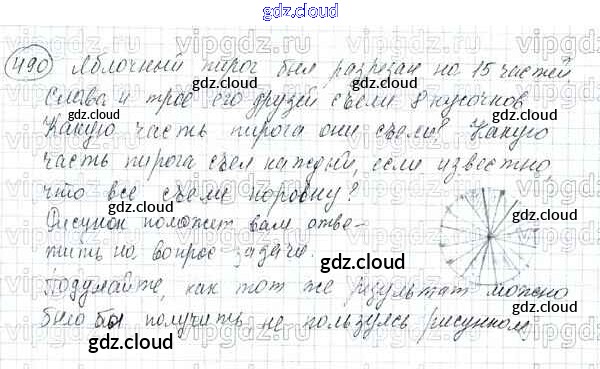 gdz.cloud
490 Яблочный пирог был разрезан на 15 частей
gdz.cloud
Слава и трое его друзей съели 8 кусочков
gdz.cloud
Какую часть пирога они съели? Какую
gdz.cloud
часть пирога съел каждый, если известно,
что все съели поровну?
gdz.cloud
Рисунок поможет вам отве-
тить на вопрос задачи.
gdz.cloud
Подумайте, как тот же результат можно
gdz.cloud
было бы получить, не пользуясь рисунком
gdz.cloud